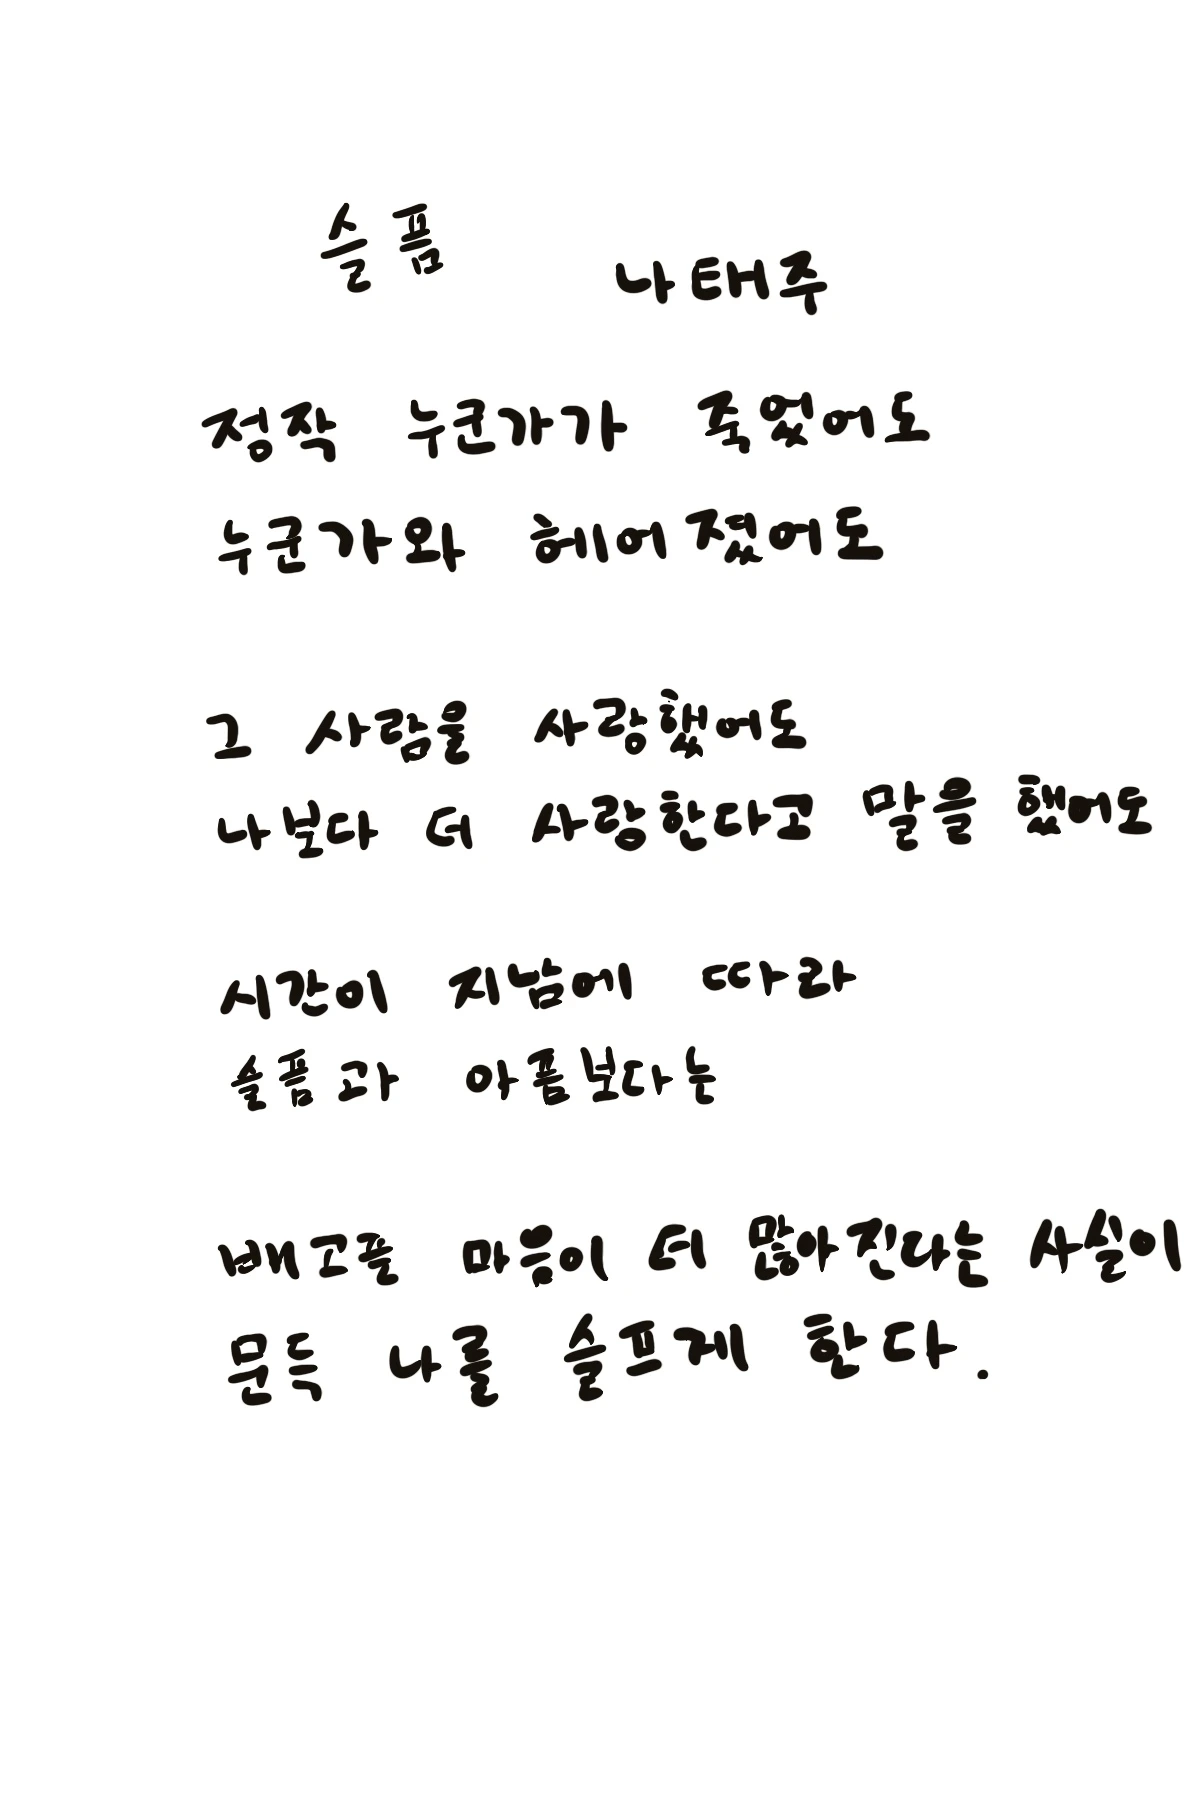 슬픔
나태주
정작 누군가가 죽었어도
누군가와 헤어졌어도
그 사람을 사랑했어도
나보다 더 사랑한다고 말을 했어도
시간이 지남에 따라
슬픔과 아픔보다는
배고픔 마음이 더 많아진다는 사실이
문득 나를 슬프게 한다.